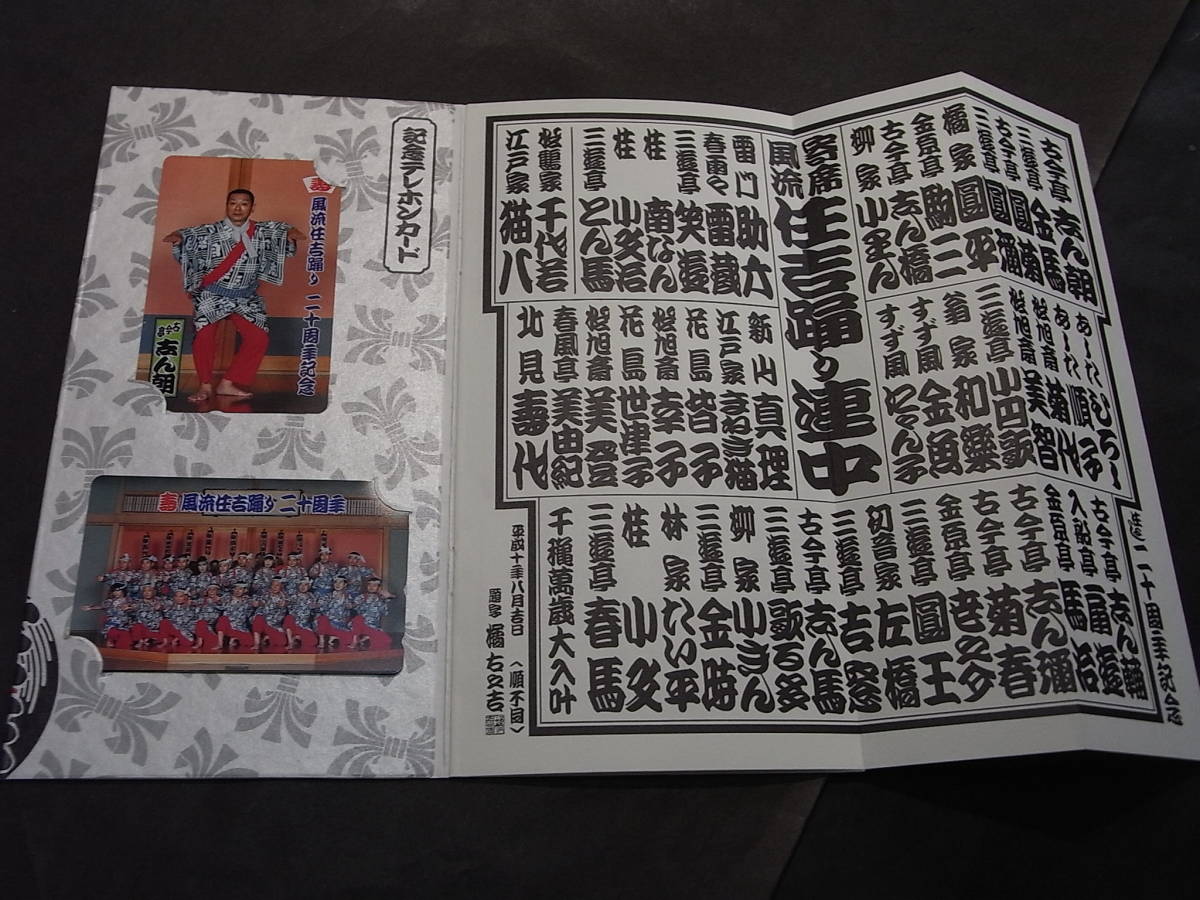 記念テレホンカード
寿 風流住吉踊り 二十周年記念
古今亭 志ん朝
寿 風流住吉踊り 二十周年
住吉踊り二十周年記念
古今亭 志ん朝
三遊亭 金馬
三遊亭 圓菊
古今亭 圓彌
三遊亭 圓平
橘家
金原亭 駒三
古今亭 志ん橋
柳家 小里ん
寄席
風流 住吉踊り連中
雷門 助六
春雨や 雷蔵
三遊亭 笑遊
桂 南なん
桂 小文治
三遊亭 とん馬
松鶴家 千代若
江戸家 猫八
あーむろー
あーた 順子
松旭斎 菊代
松旭斎 美智
三遊亭 小円歌
翁家 和楽
すず風 金魚
すず風 にゃん子
新山 真理
江戸家 まねき猫
花島 皆子
松旭斎 幸子
花島 世津子
松旭斎 美登
春風亭 美由紀
北見 寿代
古今亭 志ん輔
古今亭
入船亭 扇遊
金原亭 馬治
古今亭 志ん彌
古今亭 菊春
金原亭 世之介
三遊亭 圓王
初音家 左橋
三遊亭 吉窓
古今亭 志ん馬
三遊亭 歌る多
柳家 小さん
三遊亭 金時
林家 たい平
桂 小文
三遊亭 春馬
千穐萬歳大入叶
〈順不同〉
平成十年八月吉日
題字 橘右之吉